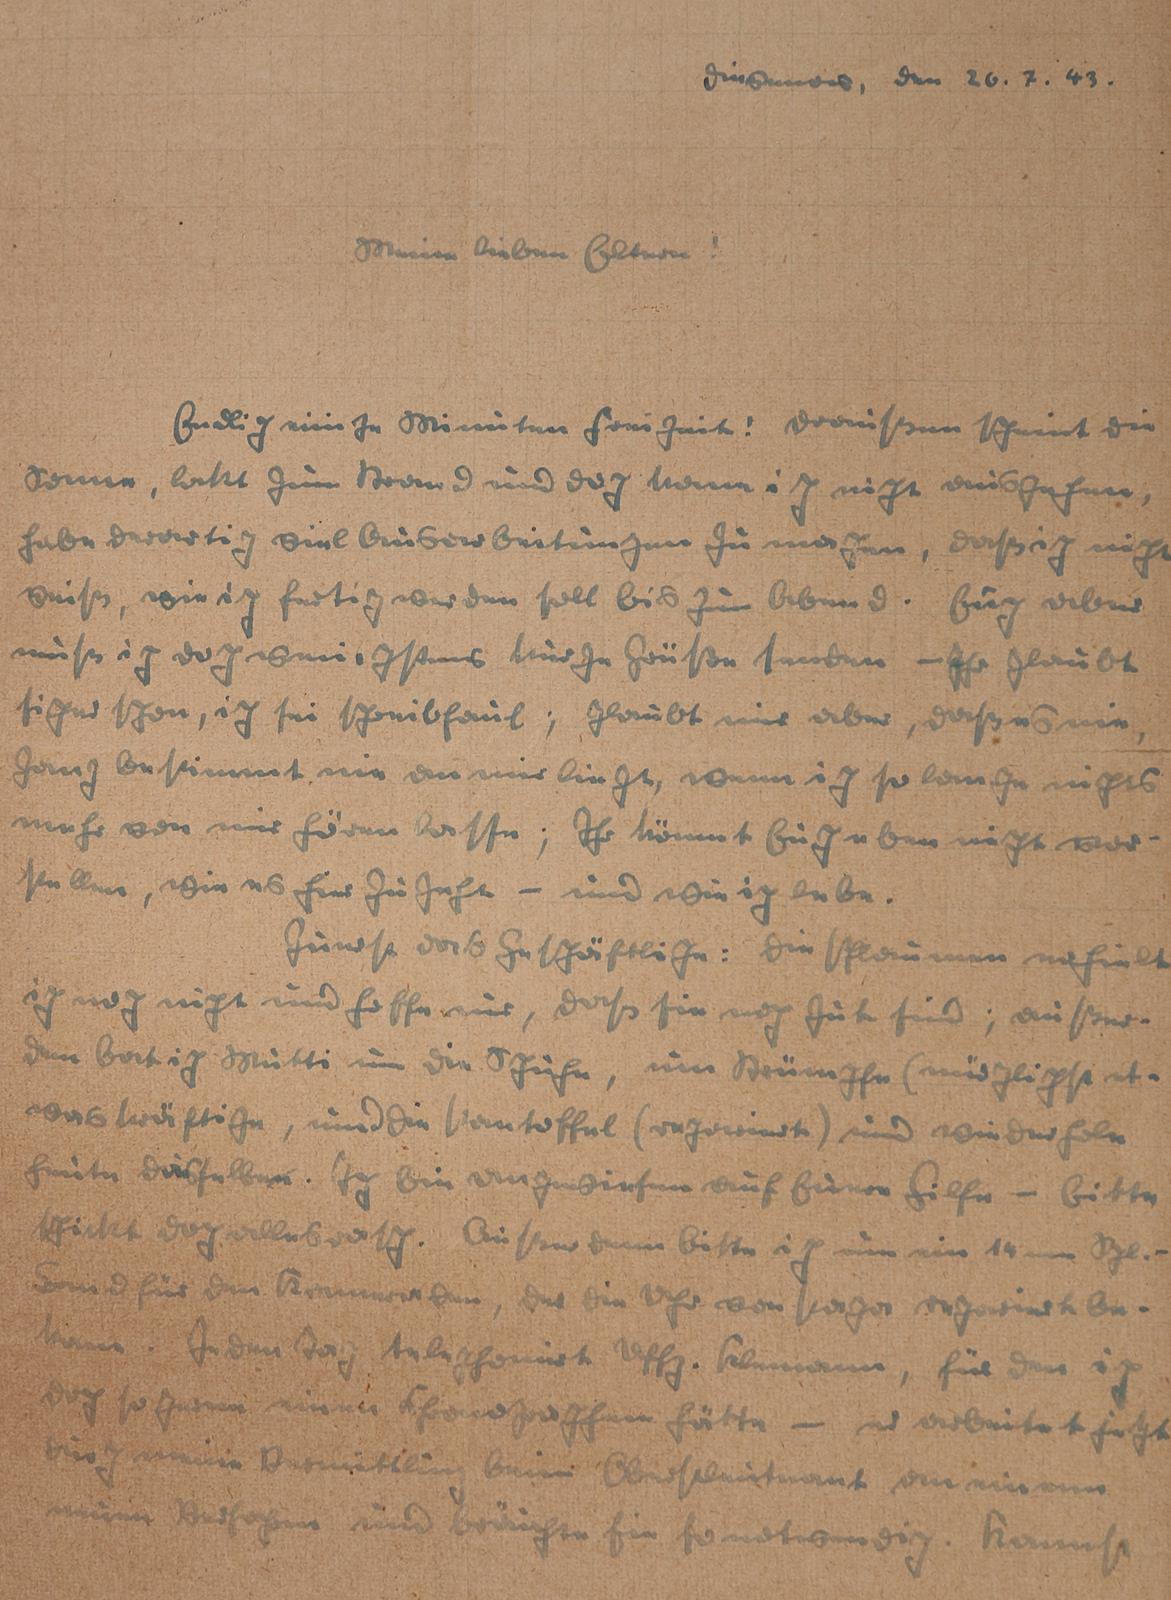 den 26. 7. 43.
Meine lieben Eltern!
Endlich einige Minuten freizeit! Draußen scheint die
Sonne, lockt zum Strand und doch kann ich nicht ausgehen,
habe derartig viel Ausarbeitungen zu machen, daß ich nicht
weiß, wie ich fertig werden soll bis zum Abend. Euch aber
muß ich doch wenigstens kurze Grüße senden – Ihr glaubt
sicher schon, ich sei schreibfaul; glaubt mir aber, daß es nie,
ganz bestimmt nie an mir liegt, wenn ich so lange nichts
mehr von mir hören lasse; Ihr könnt Euch eben nicht vor-
stellen, wie es hier zugeht – und wie ich lebe.
Zuerst das Geschäftliche: die Pflaumen erhielt
ich noch nicht und hoffe nur, daß sie noch gut sind; außer-
dem bat ich Mutti um die Schuhe, um Strümpfe (möglichst et-
was kräftige, und die Pantoffel (repariert) und wiederhole
heute dasselbe. Ich bin angewiesen auf Eure Hilfe – bitte
schickt doch alles rasch. Außerdem bitte ich um ein 14 mm
band für den Kameraden, der die Uhr von Papa repariert be-
kam. Jeden Tag telephoniert Uffz. für den ich
doch so gerne einen hätte – er arbeitet jetzt
durch meine Vermittlung beim Oberstleutnant an einem
neuen Verfahren und bräuchte sie so notwendig. Kannst